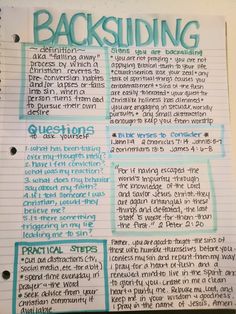 BACKSLIDING
~definition~
aka "falling away"
process by which a
Christian reverts to
pre conversion habits
and/or lapses or falls
into sin, when a
person turns from God
to pursue their own
desire
Signs you are backsliding
* you are not praying * you are not
applying biblical truth to your life
* sin * the cross
are easily "downplayed" * your desire for
christlike holiness has dimmed *
you are engaging in secular, worldly
pursuits * any small distraction
is enough to keep you from worship
Questions
to ask yourself
1. what has been taking
over my thoughts lately?
2. have I felt conviction?
what was my reaction?
3. what does my behavior
say about my faith?
4. if I told someone I was
Christian, would they
believe me?
5. is there something
triggering in my life
leading me to sin?
* Bible Verses to Consider *
1 John 1:9 2 Chronicles 7:14
2 Corinthians 13:5 James 4:6-8
"For if having escaped the
world's impurity through
the knowledge of the Lord
and savior Jesus Christ they
are again entangled in these
things and defeated, the last
state is worse for them than
the first." 2 Peter 2:20
PRACTICAL STEPS
* cut out distractions (tv,
social media, etc for a bit)
* spend time everyday in
prayer + the word
* seek advice from your
Christian community if
available
Father, you are good to forgive the sins of
those who humble themselves before you. I
confess my sin and repent from my way
I pray for a fresh of flesh and a
renewed mind to live in the Spirit and
to glorify you. Create in me a clean
heart + purify me. Rebuke me, Lord, and
keep me in your wisdom + goodness.
I pray in the name of Jesus, Amen